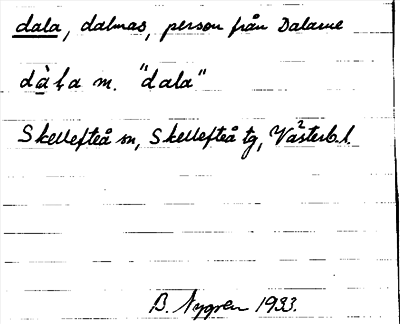 dala, dalmas, person från Dalarne
dàḷa m. "dala"
Skellefteå sn, Skellefteå tg, Västerb. l.
B. Nygren 1933.